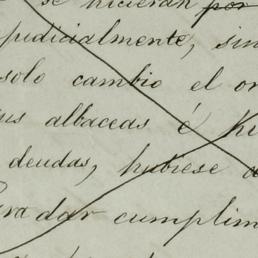 se hicieran por
judicialmente, sin
solo cambio el or
us albaceas é hi
deudas, hubiese
Para dar cumplim